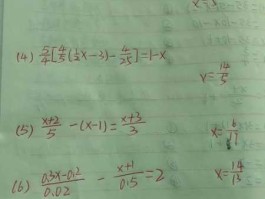 x=3
(4) 5/4[4/5(1/2x-3)-4/25]=1-x
x=14/5
(5) (x+2)/5 -(x-1)= (x+3)/3
(6) (0.3x-0.2)/0.02 - (x+1)/0.5 =2
x=14/13